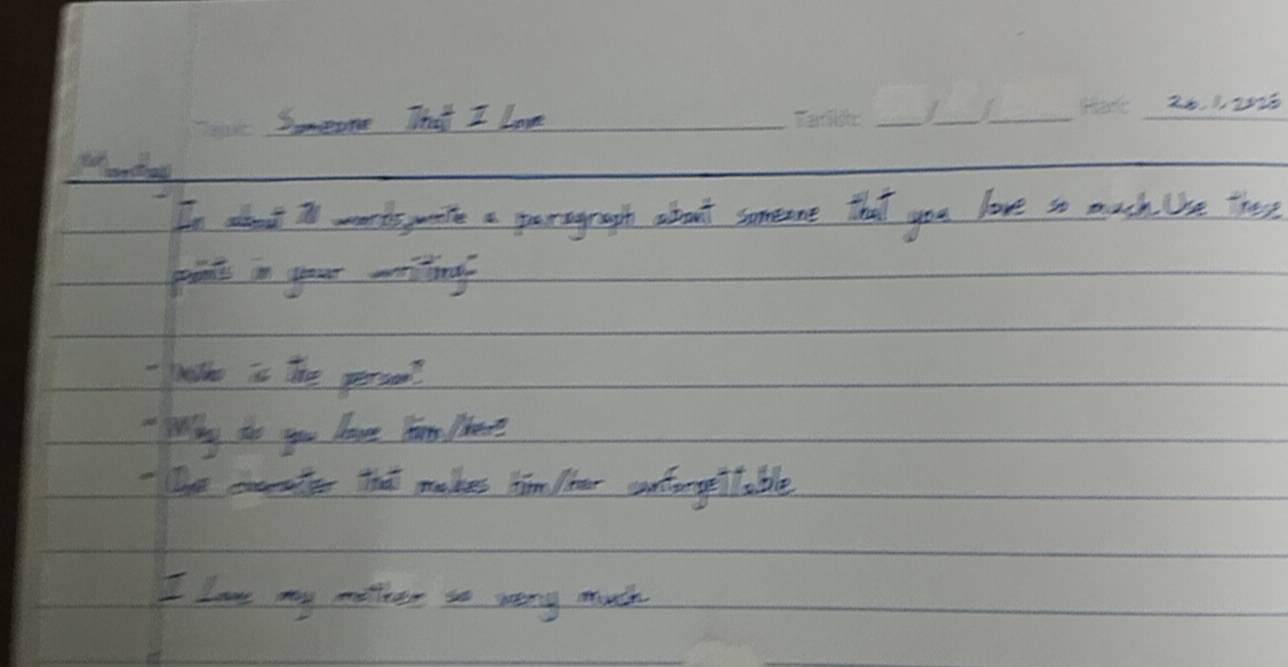 Someone That I Love Tarikh: / / Hari: 26.1.2026
Monday
In about words, write a paragraph about someone that you love so much. Use these
points in your writing:
- Who is the person?
- Why do you love him/her?
- One character that makes him/her unforgettable
I Love my mother so very much